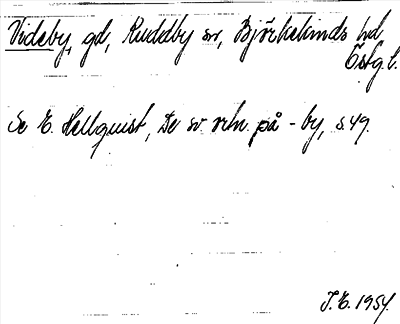 Videby, gd, Kuddby sn, Björkekinds hd
Östg l.
Se E. Hellquist, De sv. ortn. på -by, s. 49.
J.E. 1954.